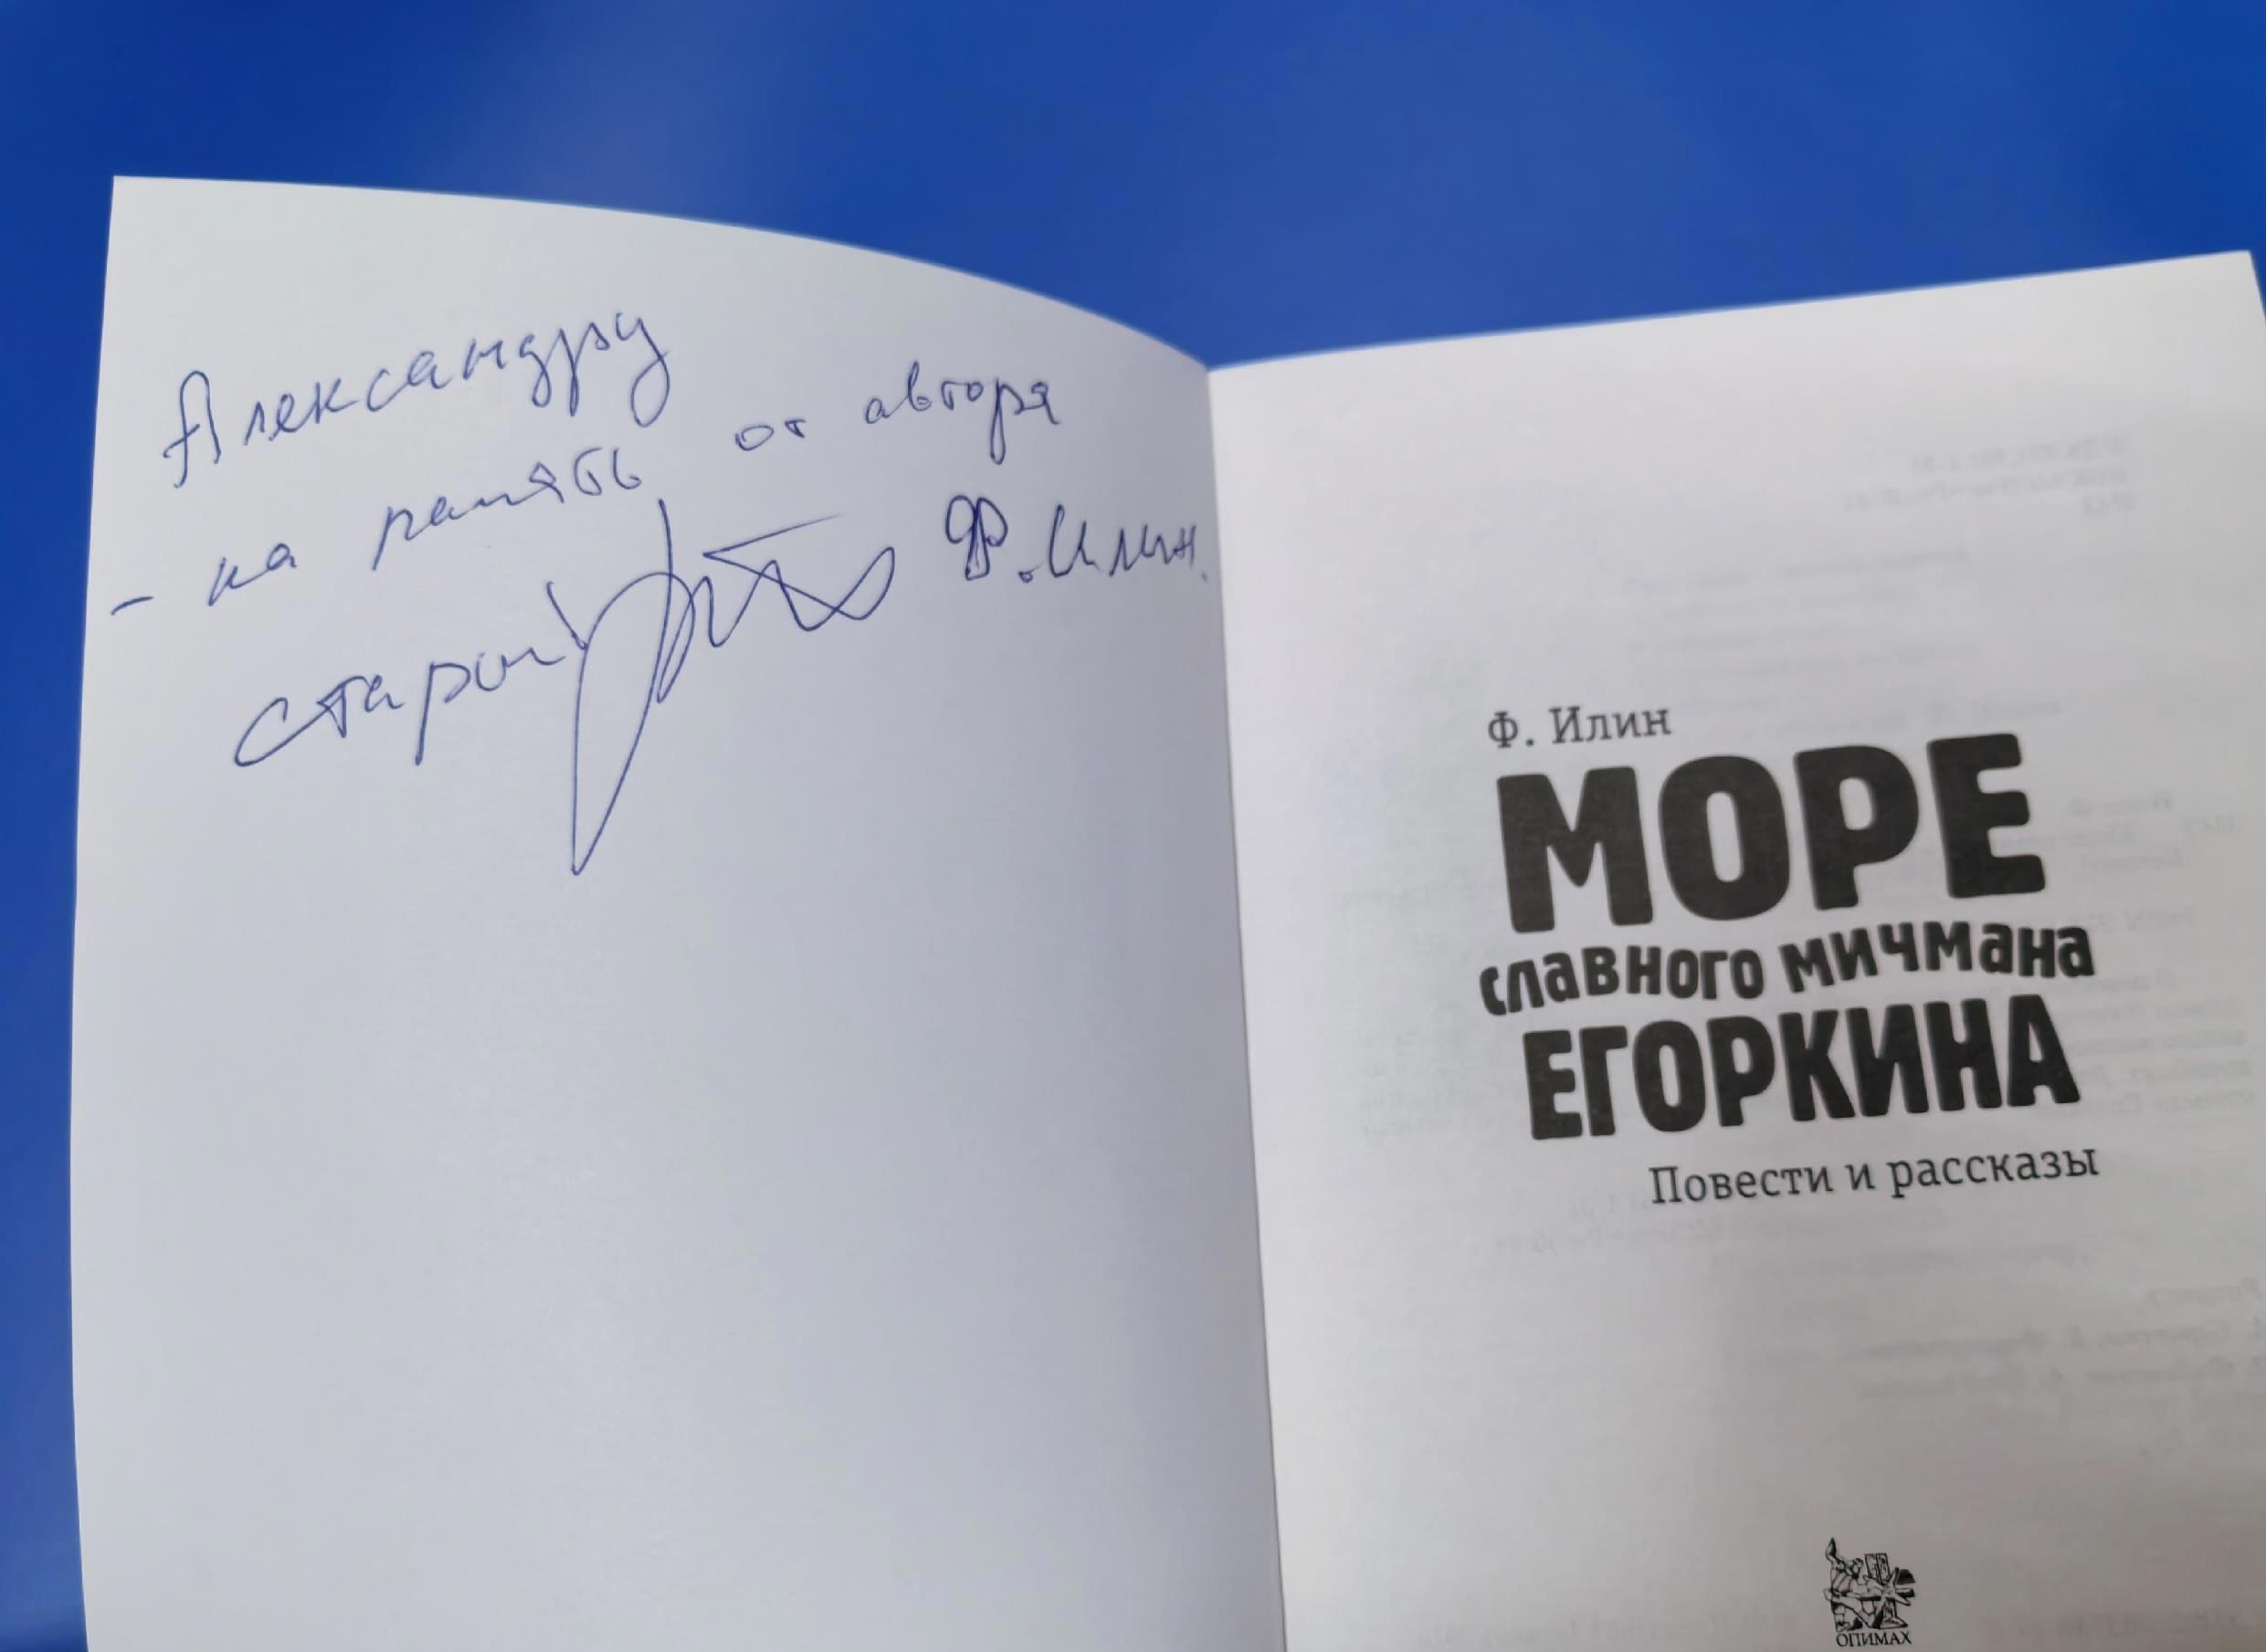 Александру
- на память от автора
старом Ф. Илин.
Ф. Илин
МОРЕ
славного мичмана
ЕГОРКИНА
Повести и рассказы
ОПИМАХ